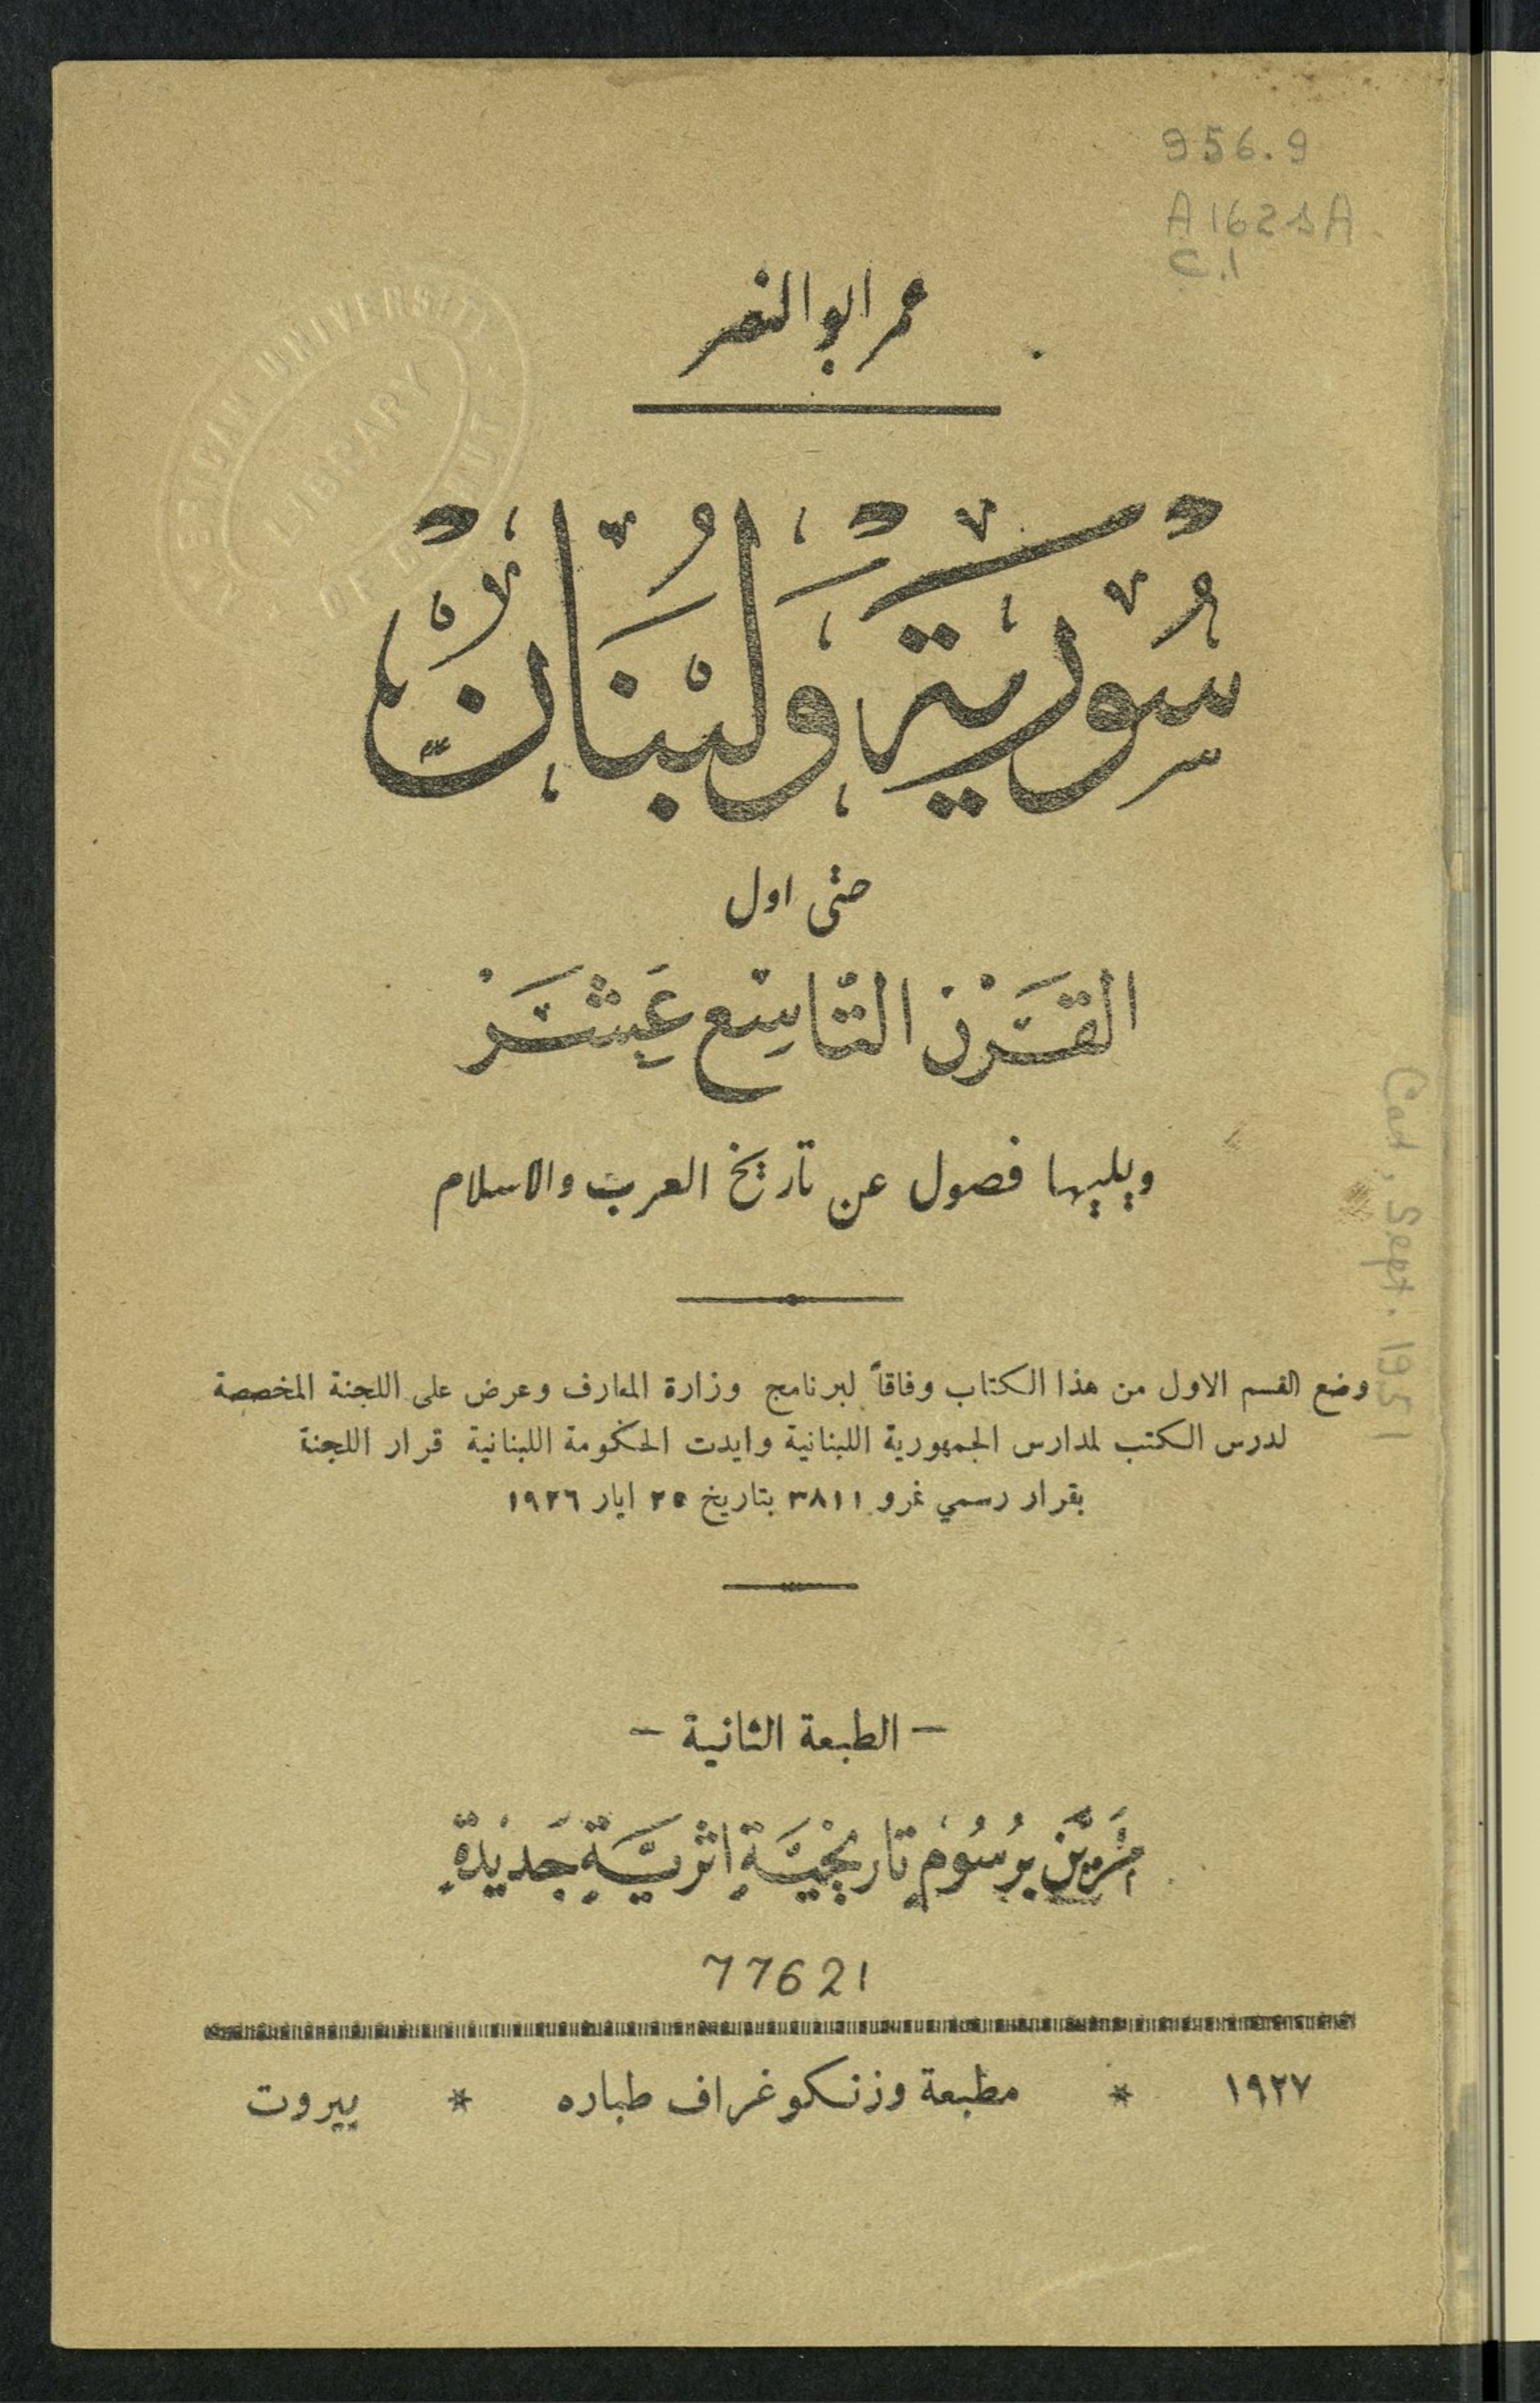 956.9
A162sA
C.1
عمر ابو النصر
سُورية وَلبْنَانْ
حتى اول
القَرْن التّاسِع عَشَرْ
ويليها فصول عن تاريخ العرب والاسلام
وضع القسم الاول من هذا الكتاب وفاقاً لبرنامج وزارة المعارف وعرض على اللجنة المخصصة
لدرس الكتب لمدارس الجمهورية اللبنانية وايدت الحكومة اللبنانية قرار اللجنة
بقرار رسمي نمرو ٣٨١١ بتاريخ ٢٥ ايار ١٩٢٦
– الطبعة الثانية –
مُزَيَّن بِرُسُومٍ تاريخيَّةٍ اثريَّةٍ جَديْدةٍ
77621
١٩٢٧ * مطبعة وزنكوغراف طباره * بيروت
Cat. Sept. 1951
LIBRARY